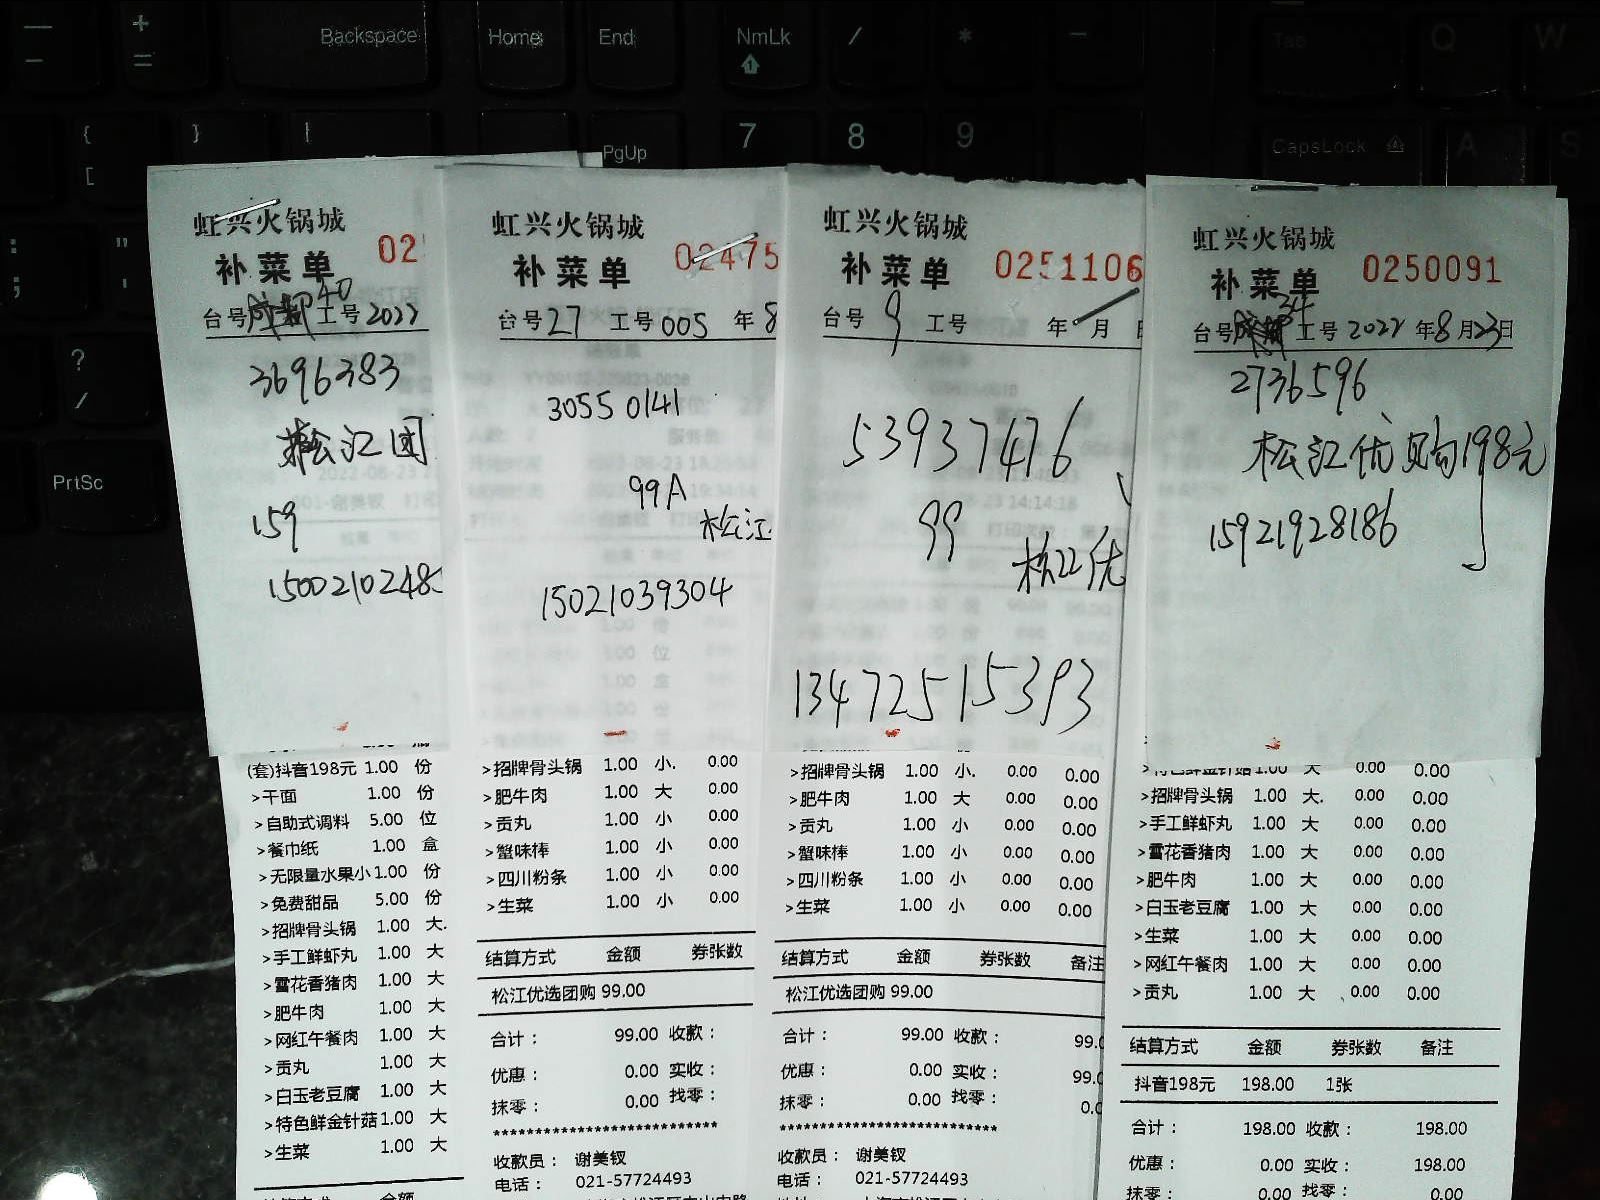 Backspace
Home
End
NmLk
PgUp
7
8
9
PrtSc
Tab
Q
W
CapsLock
A
S
虹兴火锅城
补菜单
02
台号 40 工号2022
3696383
松江团
159
1500210248
(套)抖音198元 1.00 份
>干面 1.00 份
>自助式调料 5.00 位
>餐巾纸 1.00 盒
>无限量水果小 1.00 份
>免费甜品 5.00 份
>招牌骨头锅 1.00 大.
>手工鲜虾丸 1.00 大
>雪花香猪肉 1.00 大
>肥牛肉 1.00 大
>网红午餐肉 1.00 大
>贡丸 1.00 大
>白玉老豆腐 1.00 大
>特色鲜金针菇 1.00 大
>生菜 1.00 大
虹兴火锅城
补菜单
02475
台号27 工号005 年8
30550141
99A
松江
15021039304
>招牌骨头锅 1.00 小. 0.00
>肥牛肉 1.00 大 0.00
>贡丸 1.00 小 0.00
>蟹味棒 1.00 小 0.00
>四川粉条 1.00 小 0.00
>生菜 1.00 小 0.00
结算方式 金额 券张数
松江优选团购 99.00
合计： 99.00 收款：
优惠： 0.00 实收：
抹零： 0.00 找零：
***************************
收款员： 谢美钗
电话： 021-57724493
虹兴火锅城
补菜单
0251106
台号9 工号 年 月 日
53937476
99
松江优
13472515393
>招牌骨头锅 1.00 小. 0.00 0.00
>肥牛肉 1.00 大 0.00 0.00
>贡丸 1.00 小 0.00 0.00
>蟹味棒 1.00 小 0.00 0.00
>四川粉条 1.00 小 0.00 0.00
>生菜 1.00 小 0.00 0.00
结算方式 金额 券张数 备注
松江优选团购 99.00
合计： 99.00 收款： 99.0
优惠： 0.00 实收： 99.0
抹零： 0.00 找零： 0.0
***************************
收款员： 谢美钗
电话： 021-57724493
虹兴火锅城
补菜单
0250091
台号 34 工号2022年8月23日
2736596
松江优购198元
15921928186
>特色鲜金针菇 1.00 大 0.00 0.00
>招牌骨头锅 1.00 大. 0.00 0.00
>手工鲜虾丸 1.00 大 0.00 0.00
>雪花香猪肉 1.00 大 0.00 0.00
>肥牛肉 1.00 大 0.00 0.00
>白玉老豆腐 1.00 大 0.00 0.00
>生菜 1.00 大 0.00 0.00
>网红午餐肉 1.00 大 0.00 0.00
>贡丸 1.00 大 0.00 0.00
结算方式 金额 券张数 备注
抖音198元 198.00 1张
合计： 198.00 收款： 198.00
优惠： 0.00 实收： 198.00
抹零： 0.00 找零： 0.00